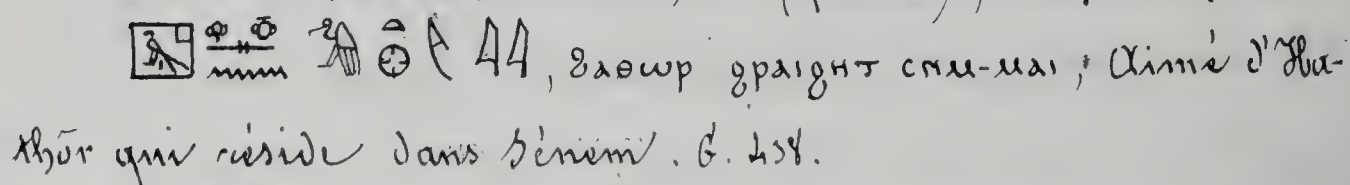 , ϩⲁⲑⲱⲣ ϩⲣⲁⲓϩⲏⲧ ⲥⲛⲙ-ⲙⲁⲓ, Aimé d'Ha-
thôr qui réside dans Sénem. G. 438.